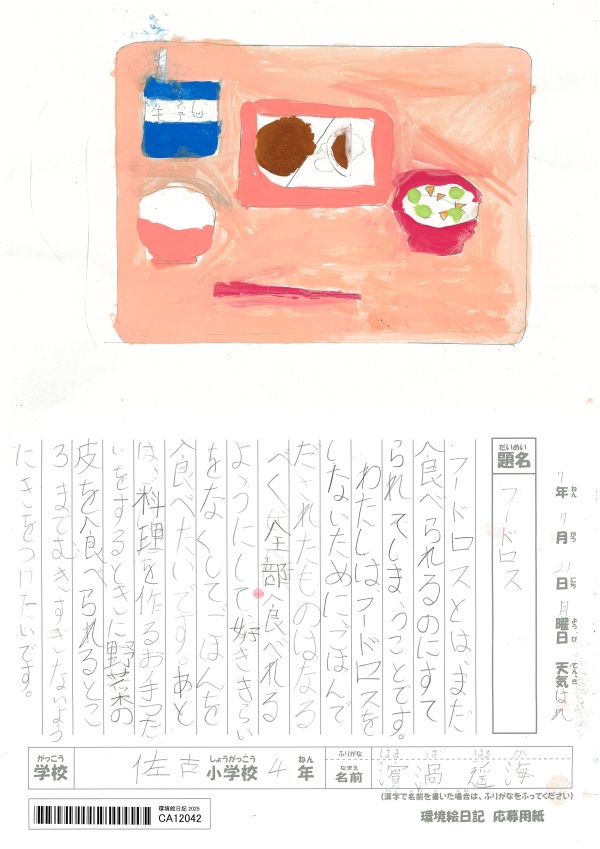 牛
だいめい
題名
フードロス
7年 7月 21日 月曜日 天気 はれ
ねん がつ にち ようび てんき
フードロスとは、まだ
食べられるのにすて
られてしまうことです。
わたしはフードロスを
しないために、ごはんで
だされたものはなる
べく全部食べれる
ようにして好ききらい
をなくしてごはんを
食べたいです。あと
は、料理を作るお手つだ
いをするときに野菜の
皮を食べられるとこ
ろまでむきすぎないよう
にきをつけたいです。
がっこう しょうがっこう ねん
学校 佐古小学校 4年
ふりがな はま うず はる か
なまえ
名前 濱渦遥海
(漢字で名前を書いた場合は、ふりがなをふってください)
環境絵日記 応募用紙
環境絵日記 2025
CA12042